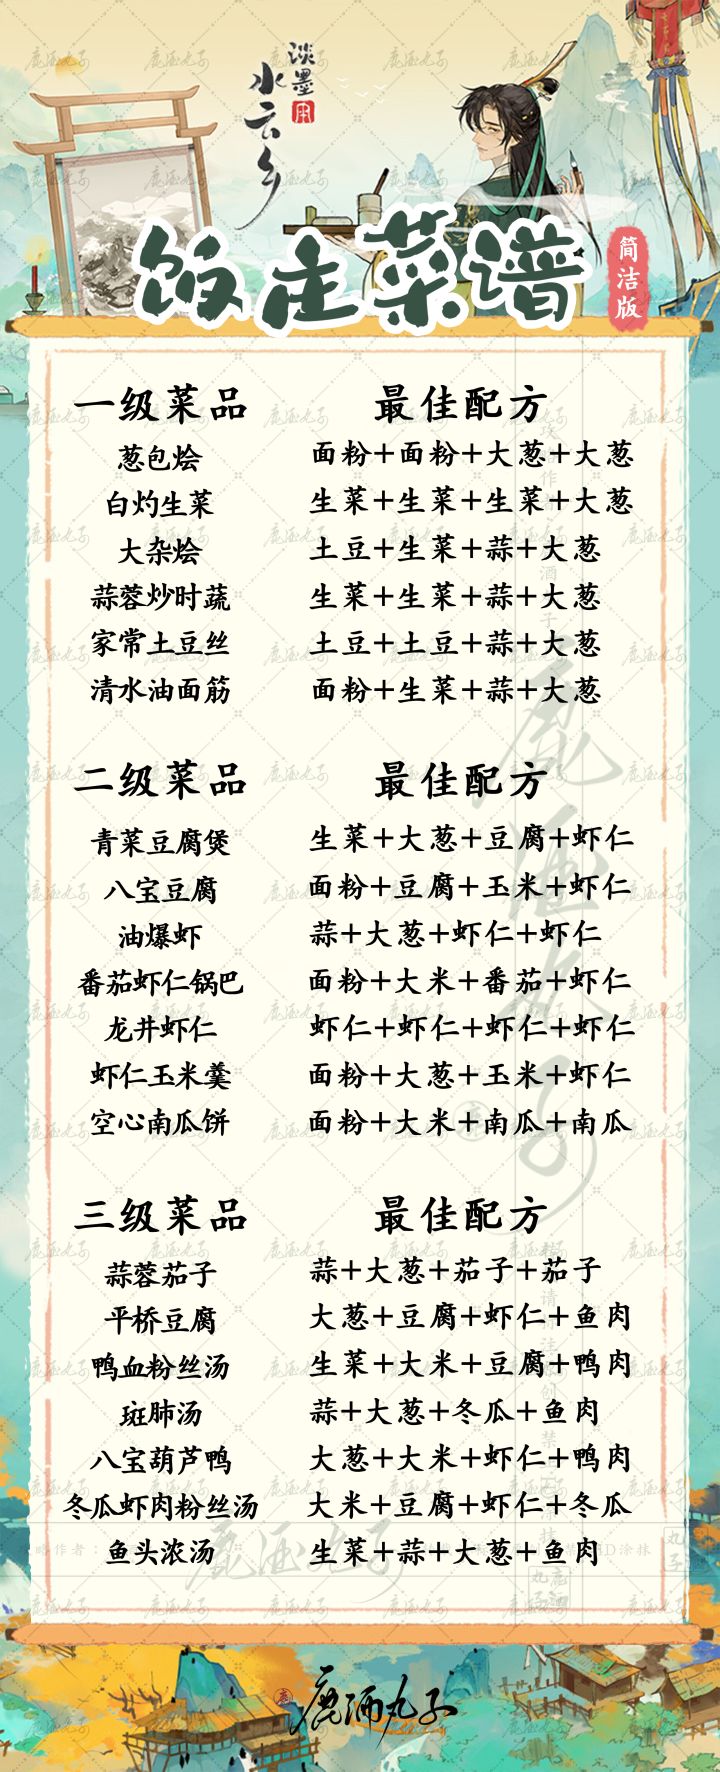 淡墨
水云乡
饭庄菜谱
简洁版
一级菜品 最佳配方
葱包烩 面粉+面粉+大葱+大葱
白灼生菜 生菜+生菜+生菜+大葱
大杂烩 土豆+生菜+蒜+大葱
蒜蓉炒时蔬 生菜+生菜+蒜+大葱
家常土豆丝 土豆+土豆+蒜+大葱
清水油面筋 面粉+生菜+蒜+大葱
二级菜品 最佳配方
青菜豆腐煲 生菜+大葱+豆腐+虾仁
八宝豆腐 面粉+豆腐+玉米+虾仁
油爆虾 蒜+大葱+虾仁+虾仁
番茄虾仁锅巴 面粉+大米+番茄+虾仁
龙井虾仁 虾仁+虾仁+虾仁+虾仁
虾仁玉米羹 面粉+大葱+玉米+虾仁
空心南瓜饼 面粉+大米+南瓜+南瓜
三级菜品 最佳配方
蒜蓉茄子 蒜+大葱+茄子+茄子
平桥豆腐 大葱+豆腐+虾仁+鱼肉
鸭血粉丝汤 生菜+大米+豆腐+鸭肉
斑肺汤 蒜+大葱+冬瓜+鱼肉
八宝葫芦鸭 大葱+大米+虾仁+鸭肉
冬瓜虾肉粉丝汤 大米+豆腐+虾仁+冬瓜
鱼头浓汤 生菜+蒜+大葱+鱼肉
鹿酒丸子